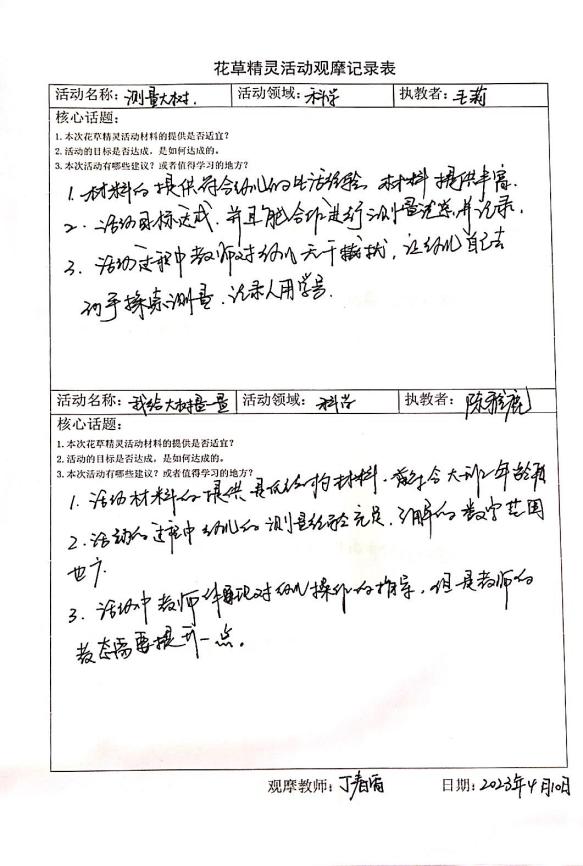 花草精灵活动观摩记录表
活动名称：测量大树. 活动领域：科学 执教者：毛莉
核心话题：
1.本次花草精灵活动材料的提供是否适宜？
2.活动的目标是否达成，是如何达成的。
3.本次活动有哪些建议？或者值得学习的地方？
1. 材料的提供符合幼儿的生活经验，材料提供丰富.
2. 活动目标达成，并且能合作进行测量记录，并记录.
3. 活动过程中教师对幼儿无干扰，让幼儿自己去
动手探索测量，记录人用学号.
活动名称：我给大树量一量 活动领域：科学 执教者：陈雅鹿
核心话题：
1.本次花草精灵活动材料的提供是否适宜？
2.活动的目标是否达成，是如何达成的。
3.本次活动有哪些建议？或者值得学习的地方？
1. 活动材料的提供是低结构材料，符合大班年龄
2. 活动的过程中幼儿的测量经验充足，了解的数字范围
也广.
3. 活动中教师体现对幼儿操作的指导，但是教师的
教态需要提升一点。
观摩教师：丁春雨 日期：2023年4月10日